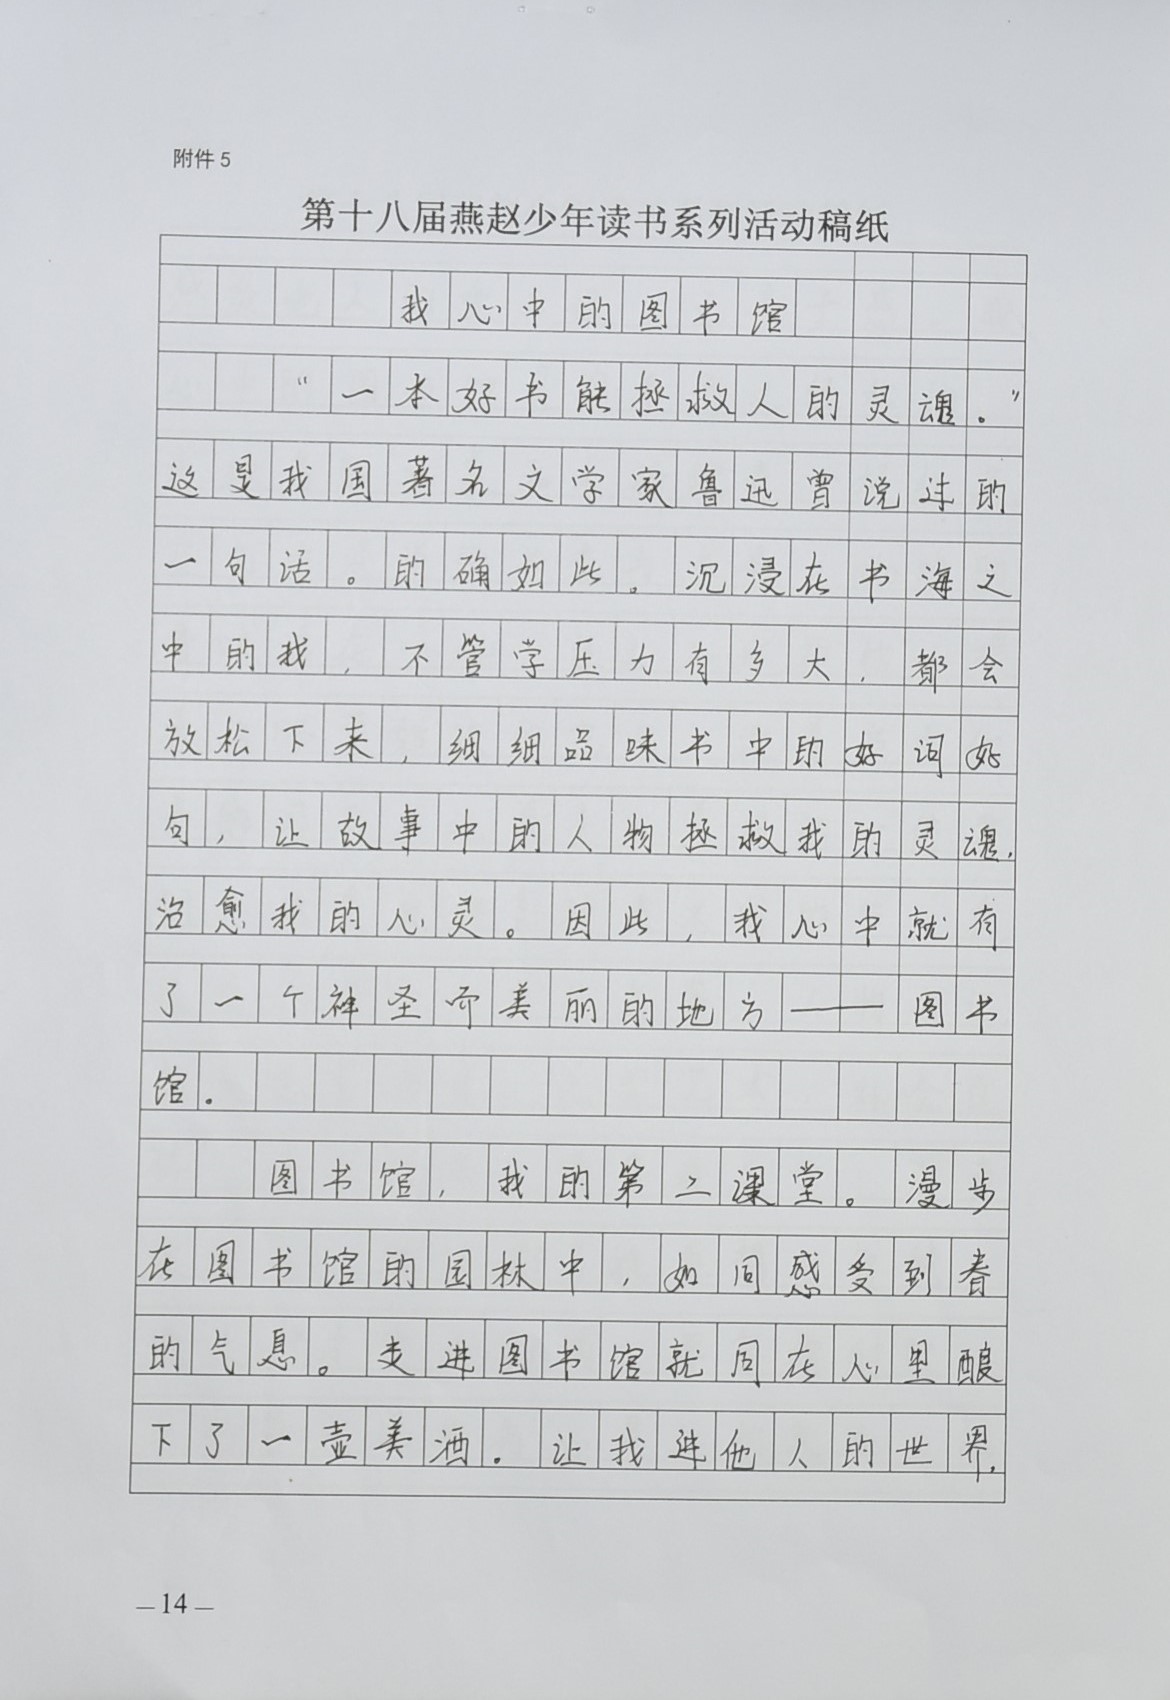 附件 5
第十八届燕赵少年读书系列活动稿纸
我心中的图书馆
“一本好书能拯救人的灵魂。”
这是我国著名文学家鲁迅曾说过的
一句话。的确如此。沉浸在书海之
中的我，不管学压力有多大，都会
放松下来，细细品味书中的好词好
句，让故事中的人物拯救我的灵魂，
治愈我的心灵。因此，我心中就有
了一个神圣而美丽的地方——图书
馆。
图书馆，我的第二课堂。漫步
在图书馆的园林中，如同感受到春
的气息。走进图书馆就同在心里酿
下了一壶美酒。让我进他人的世界，
—14—